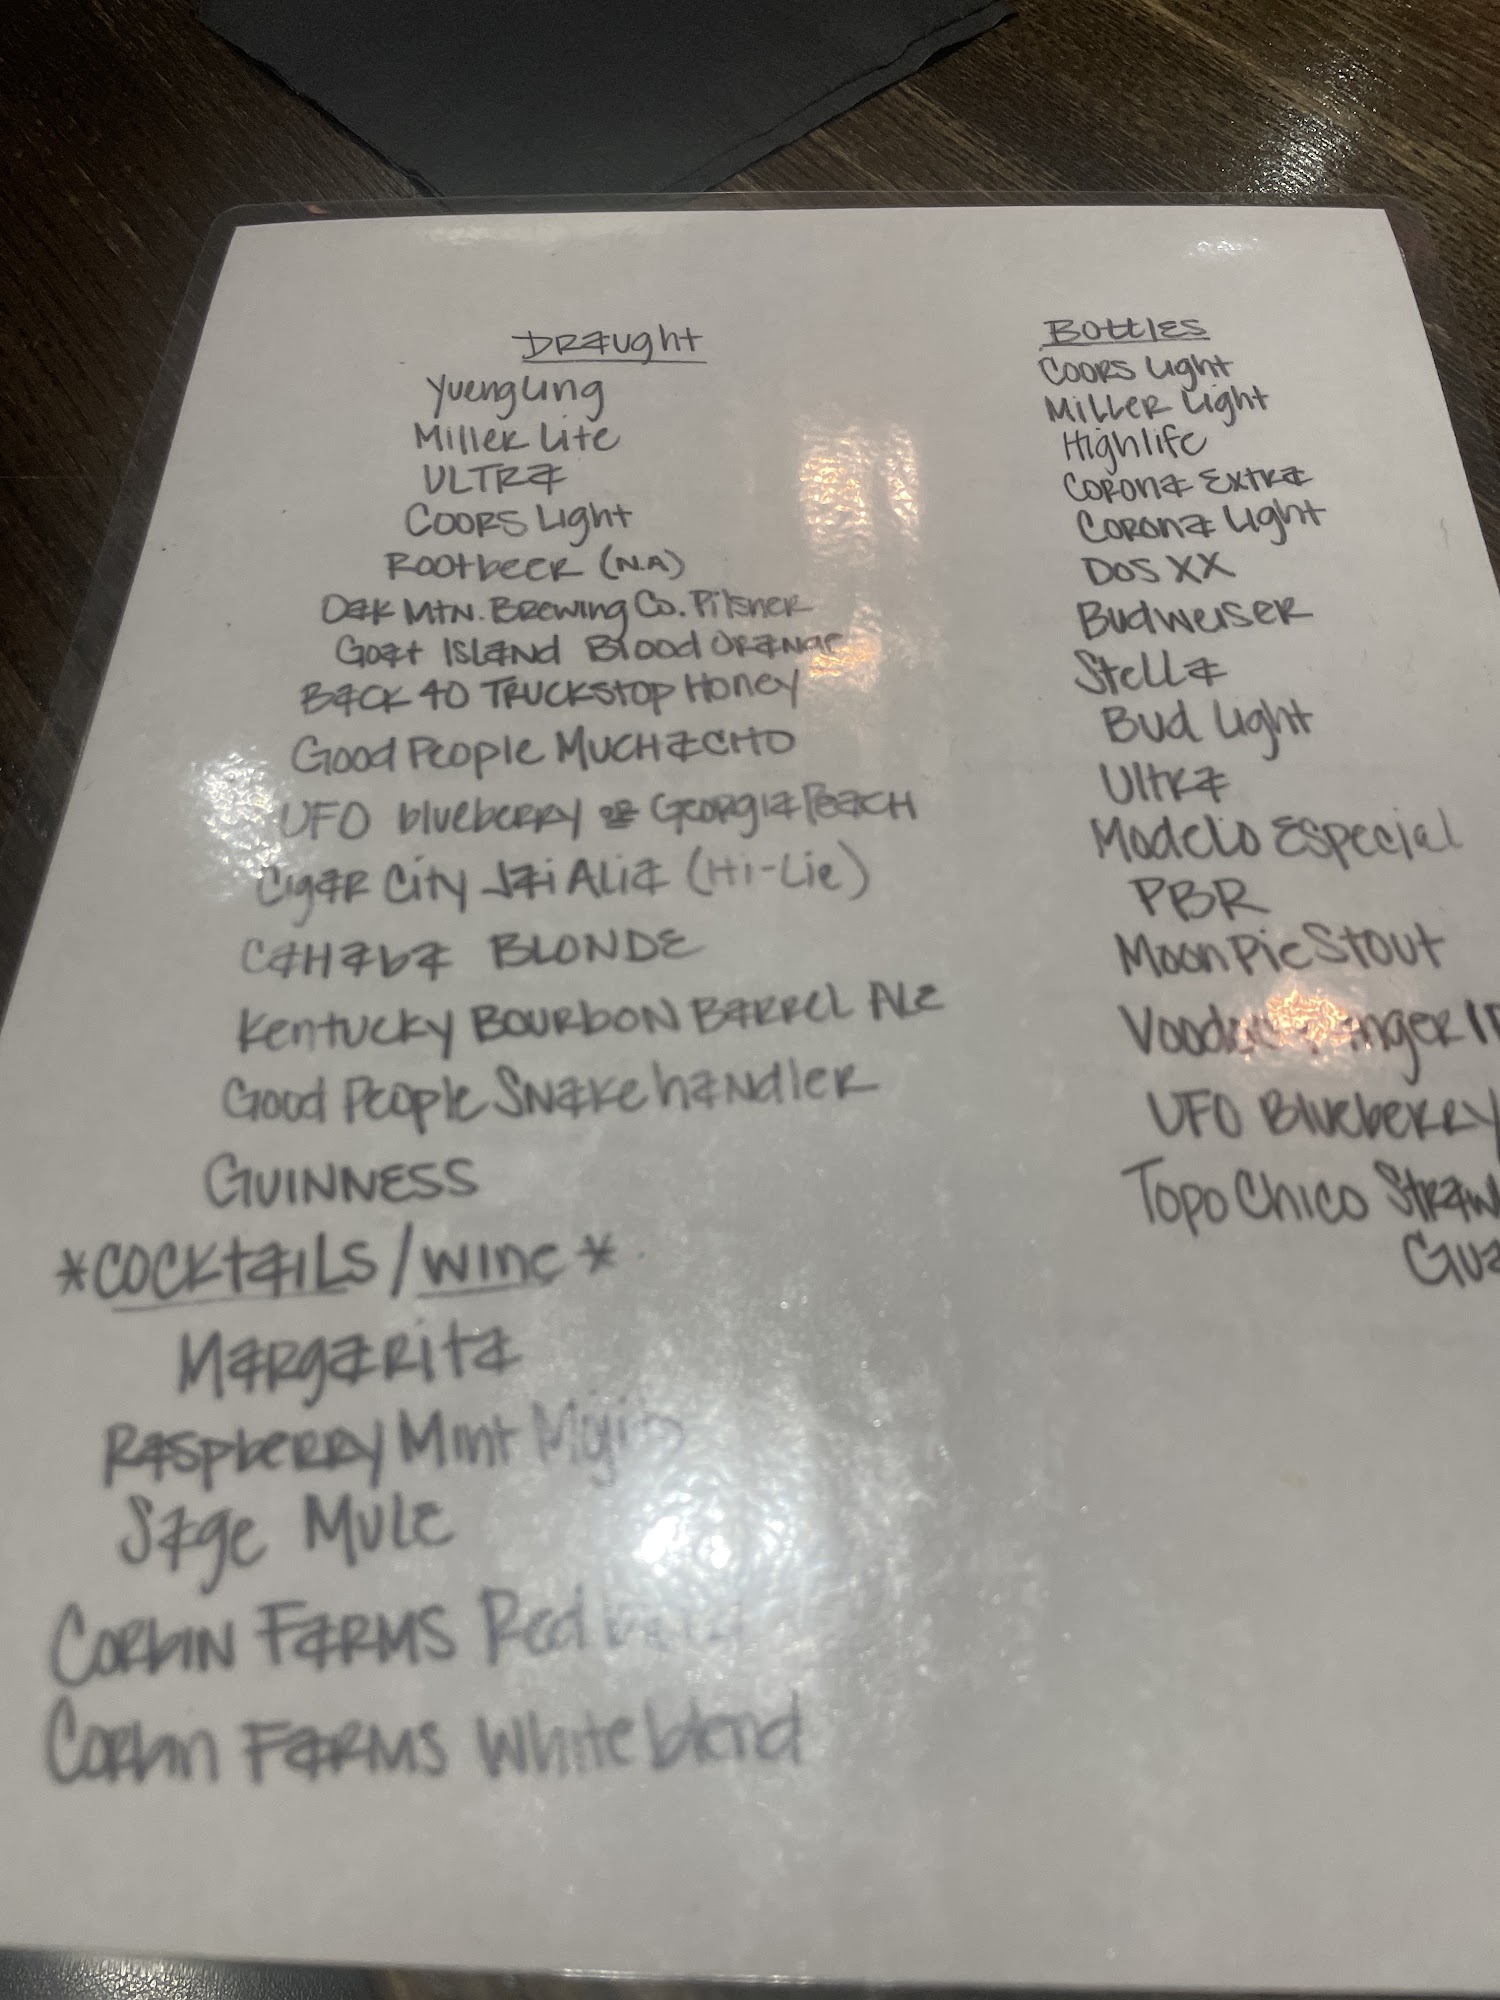 Draught
Yuengling
Miller Lite
ULTRA
Coors Light
Rootbeer (N.A)
Oak Mtn. Brewing Co. Pilsner
Goat Island Blood Orange
Back 40 Truckstop Honey
Good People Muchacho
UFO blueberry or Georgia Peach
Cigar City Jai Alia (Hi-Lie)
Cahaba Blonde
Kentucky Bourbon Barrel Ale
Good People Snakehandler
Guinness
*Cocktails/wine*
Margarita
Raspberry Mint Mojito
Sage Mule
Corbin Farms Red
Corbin Farms White blend
Bottles
Coors Light
Miller Light
Highlife
Corona Extra
Corona Light
Dos XX
Budweiser
Stella
Bud Light
Ultra
Modelo Especial
PBR
Moon Pie Stout
UFO Blueberry
Topo Chico